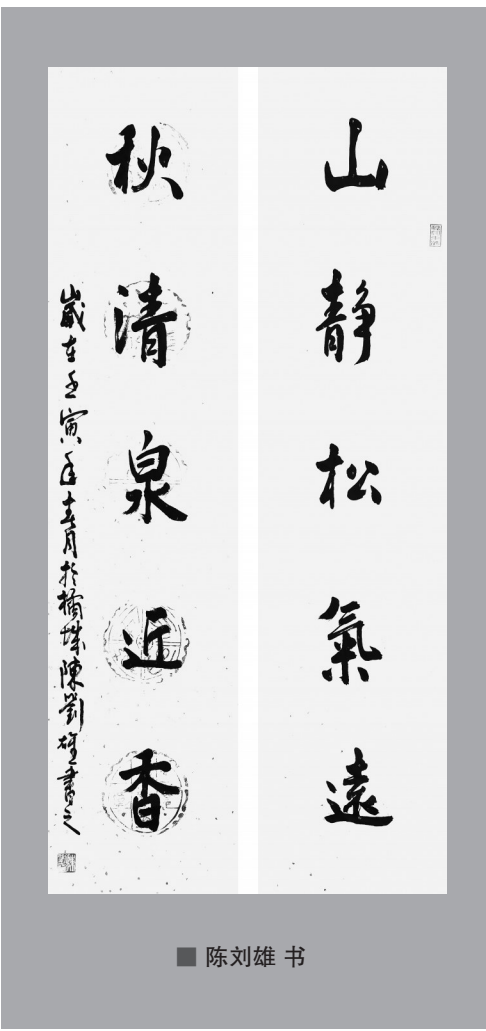 山靜松氣遠
秋清泉近香
歲在壬寅年春月於橘城陳劉雄書之
陈刘雄 书